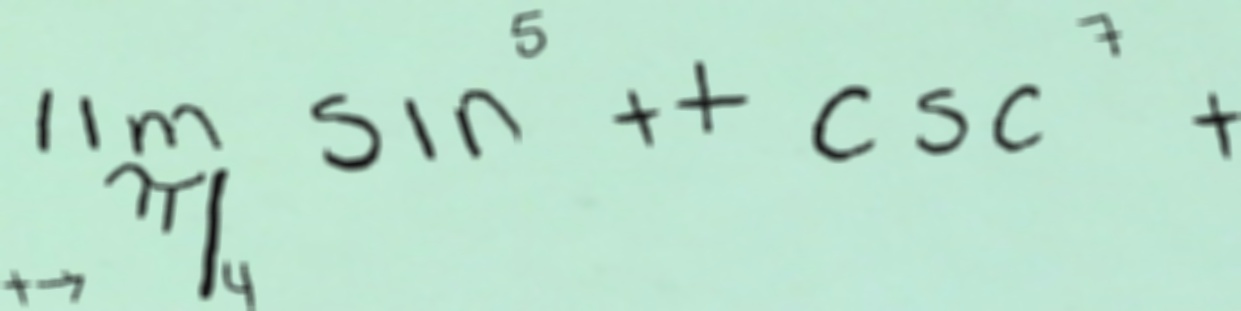 lim_{t → π/4} sin^5 t + csc^7 t